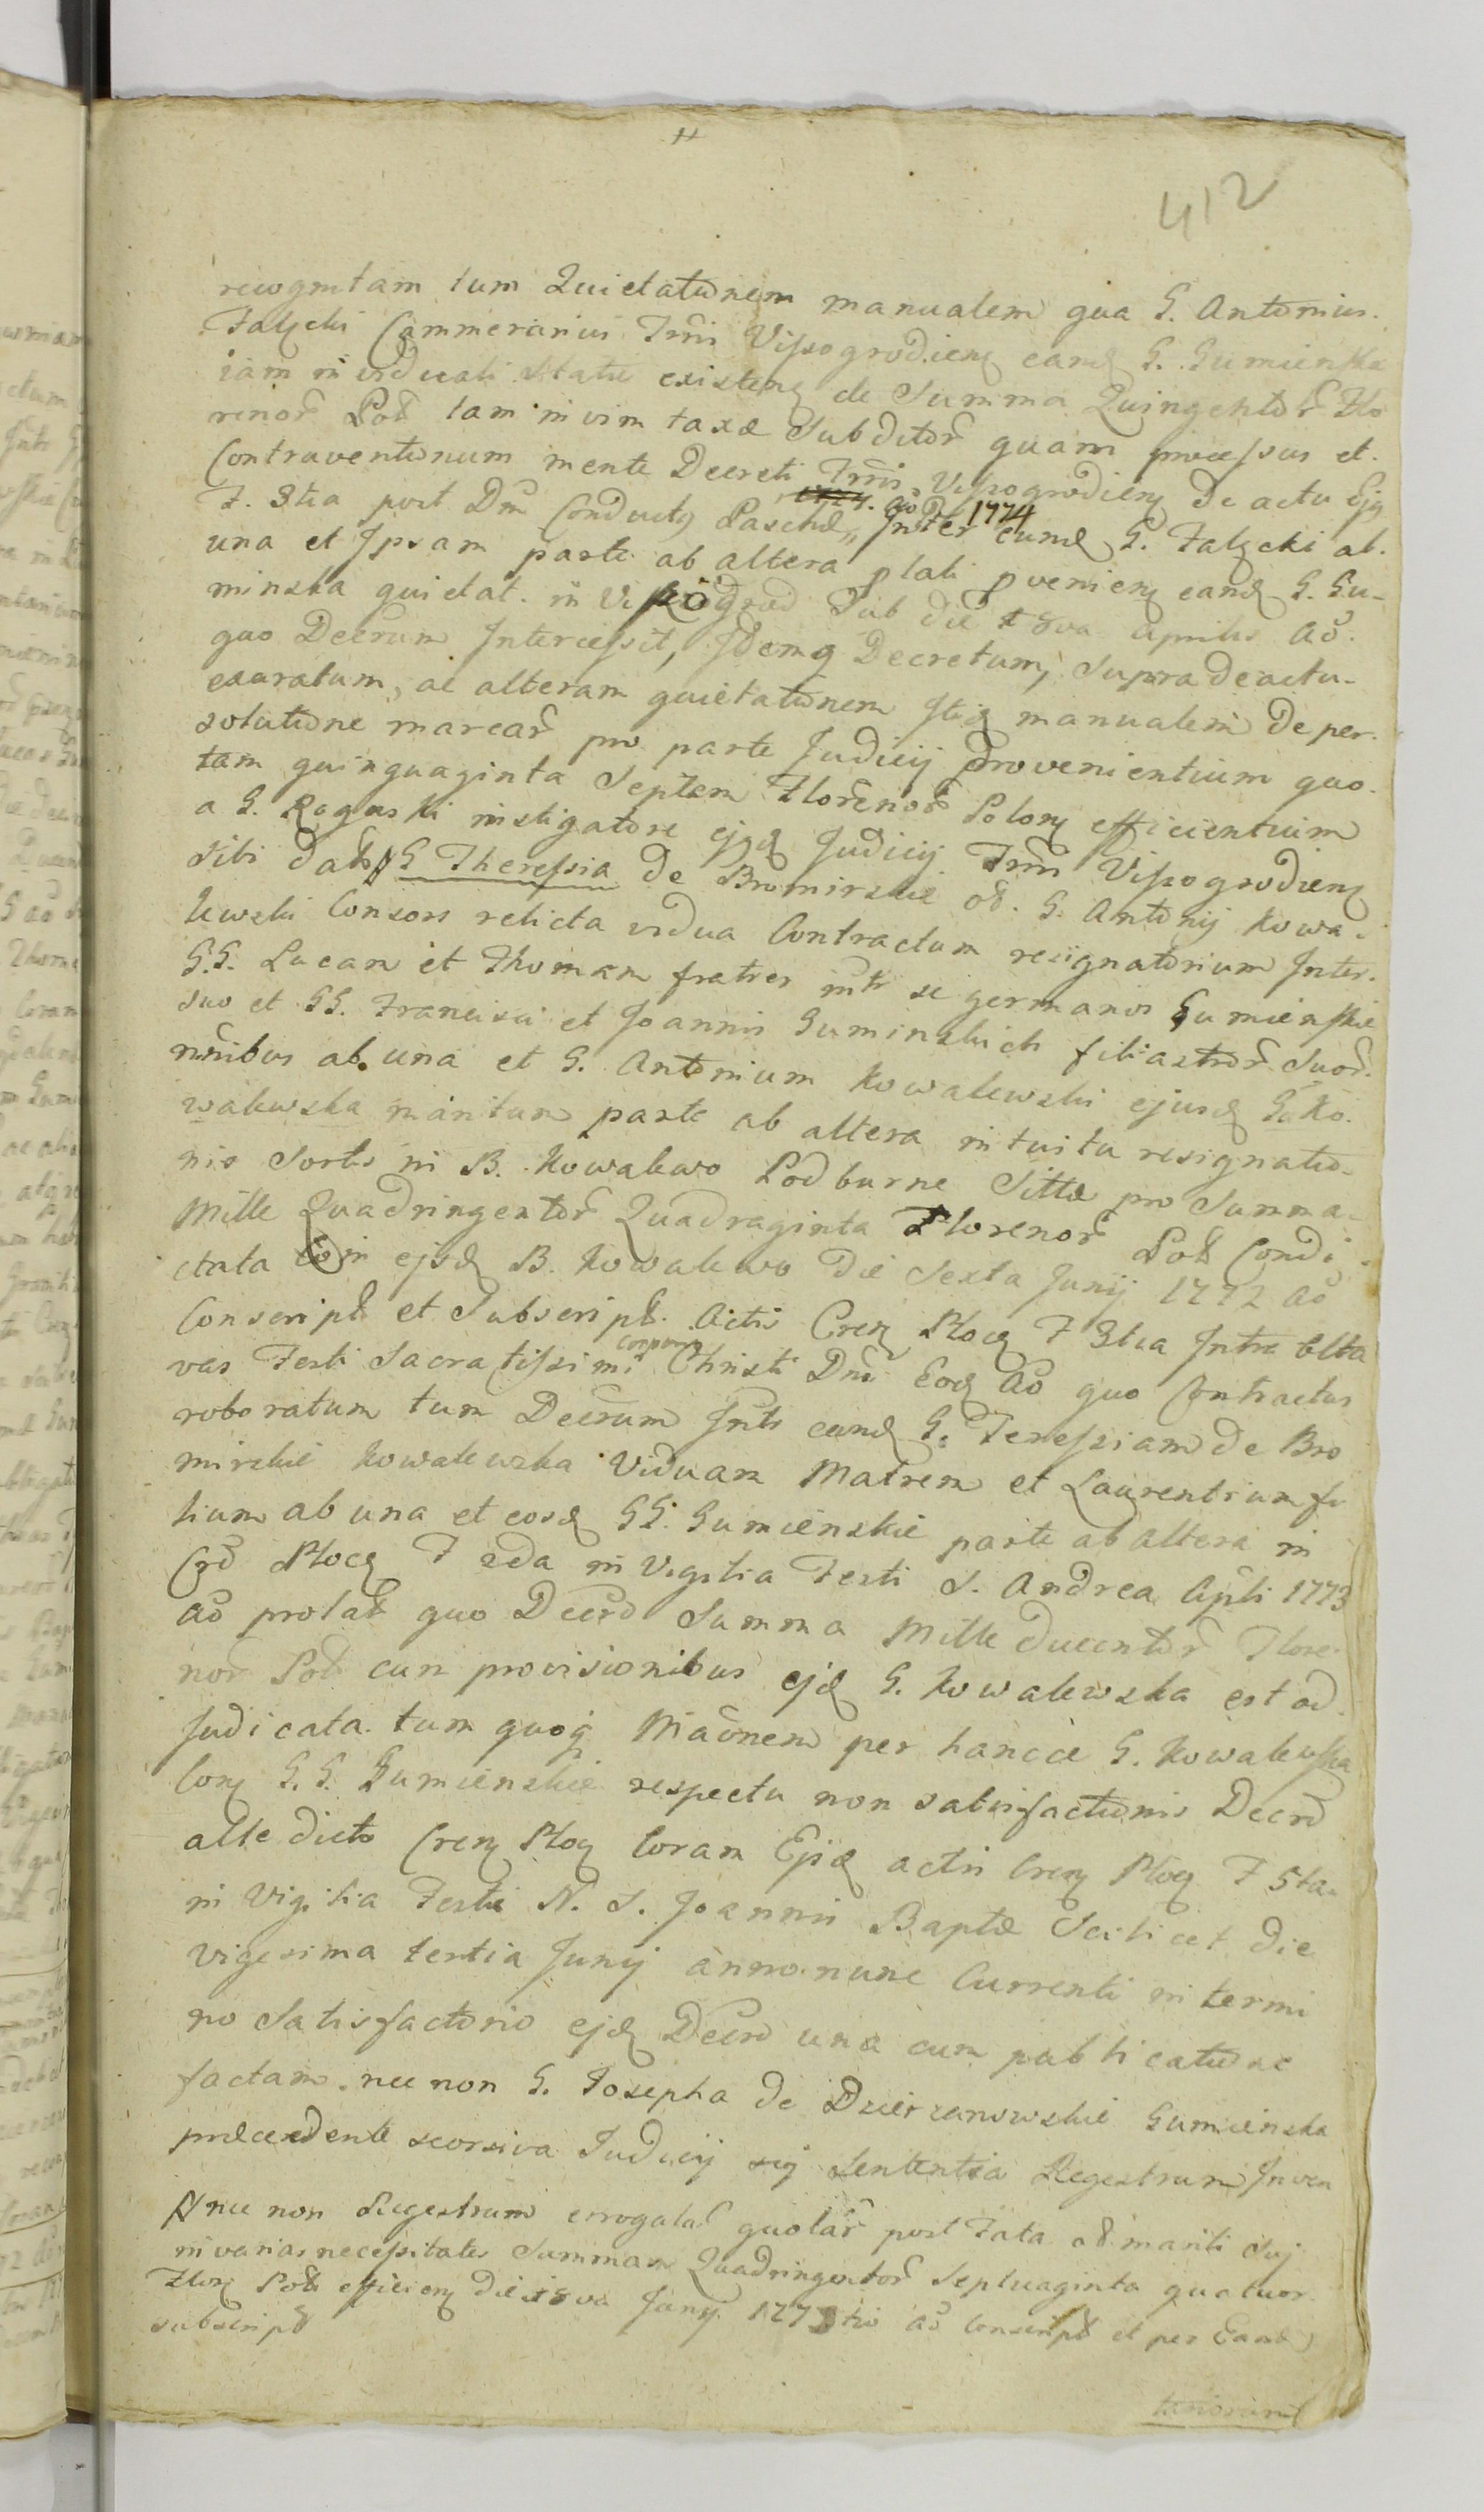 412
recognitam tum Quietationem manualem qua G. Antonius
Falęcki Cammerarius Trrii Vissogrodien eand G. Gumienska
iam in viduali Statu existen de Summa Quingentor Flo
renor Pol tam in vim taxæ Subditor quam processus et
Contraventionum mente Decreti Trrii Vissogrodien de actu Ejq
F. 3tia post Dm Conductq Paschæ 1774 Inter eumd G. Falęcki ab
una et Ipsam parte ab altera plati pvenien eand G. Gu-
minska quietat in Vissogrod Sub die 18va Aprilis Ao
quo Decrum Intercessit, Idemq Decretum, Supra de actu
exaratum, ac alteram quietationem Itid manualem de per
solutione marcar pro parte Judicij provenientium quo
tam quinquaginta Septem Florenor Polon efficientium
a G. Rogowski instigatore ejqd Judicij Trrii Vissogrodien
sibi dat G Theressia de Bromirskie ol. G. Antonij Kowa
lewski Consors relicta vidua Contractum resignatorium Inter
G.G. Lucam et Thomam fratres intr se germanos Gumienskie
suo et GG. Francisci et Joannis Guminskich filiastror Suor
nnibus ab una et G. Antonium Kowalewski ejusd G. Ko
walewska maritum parte ab altera intuitu resignatio-
nis Sortis in B. Kowalewo Podburne Sittæ pro Summa
Mille Quadringentor Quadraginta Florenor Pol Condi
ctata in ejsd B. Kowalewo die Sexta Junij 1772 Ao
Conscript et Subscript. Actis Cren Ploc F 3tia Intra Octa
vas Festi Sacratissimi Corporis Christi Dni Eod Ao quo Contractus
roboratum tum Decrum Intr eand G. Teressiam de Bro
mirskie Kowalewska Viduam Matrem et Laurentium fi
lium ab una et eosd GG. Gumienskie parte ab altera in
Crd Ploc F 2da in Vigilia Festi S. Andreæ Apli 1773
Ao prolat quo Decro Summa Mille ducentor Flore
nor Pol cum provisionibus ejd G. Kowalewska est ad
Judicata. tum quoq Maonem per hancce G. Kowalewska
Con G.G. Gumienskie respectu non satisfactionis Decro
alte dicto Cren Ploc Coram Ejsd actis Cren Ploc F 5ta
in Vigilia Festi N. S. Joannis Baptæ Scilicet die
vigesima tertia Junij anno nunc Currenti in termi
no Satisfactorio ejd Decro una cum publicatione
factam. nec non G. Josepha de Dzierzanowskie Gumienska
præcedente scorsiva Judicij sui Sententia Regestrum Inven
# nec non Regestrum errogatar quotar post Fata ol mariti Suj
in varias necessitates Summam Quadringentor Septuaginta quatuor
Flon Pol efficien die 18va Junij 1773tio Ao Conscript et per Eand
subscript
tariorum